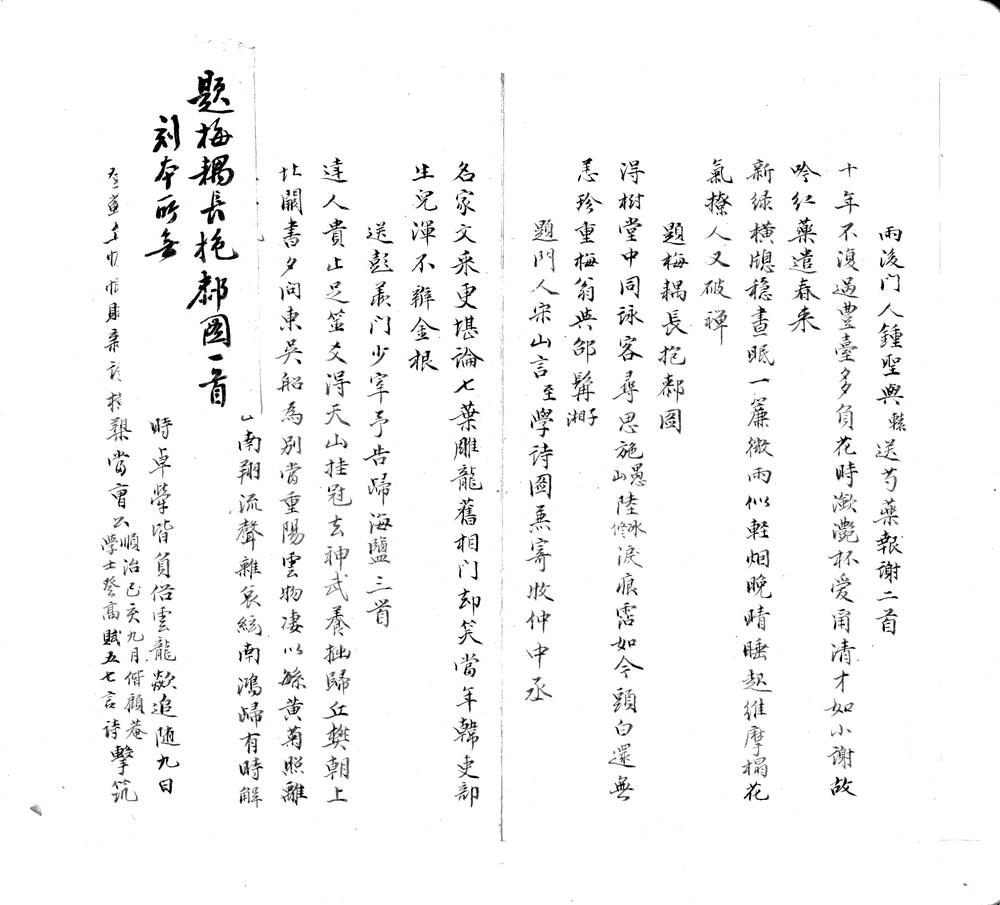 雨後門人鍾聖輿轅送芍藥報謝二首
十年不復過豐臺多負花時瀲灩杯愛甪清才如小謝故
吟紅藥遣春來
新綠橫牕穩晝眠一簾微雨似輕烟晚晴睡起維摩榻花
氣撩人又破禪
題梅耦長抱鄰圖
得樹堂中同詠客尋思施愚山陸冰修淚痕霑如今頭白還無
恙珍重梅翁與邵髯湘子
題門人宋山言至學詩圖兼寄牧仲中丞
名家文采更堪論七葉雕龍舊相門却笑當年韓吏部
生兒渾不辨金根
送彭羨門少宰予告歸海鹽三首
達人貴止足筮爻得天山挂冠去神武養拙歸丘樊朝上
北闕書夕問東吳船為別當重陽雲物凄以緜黃菊照離
南翔流聲雜哀絃南鴻歸有時解
題梅耦長抱鄰圖一首
刻本所無
時卓犖皆負俗雲龍欻追隨九日
槩當會公順治己亥九月偕顧菴學士登高賦五七言詩擊筑